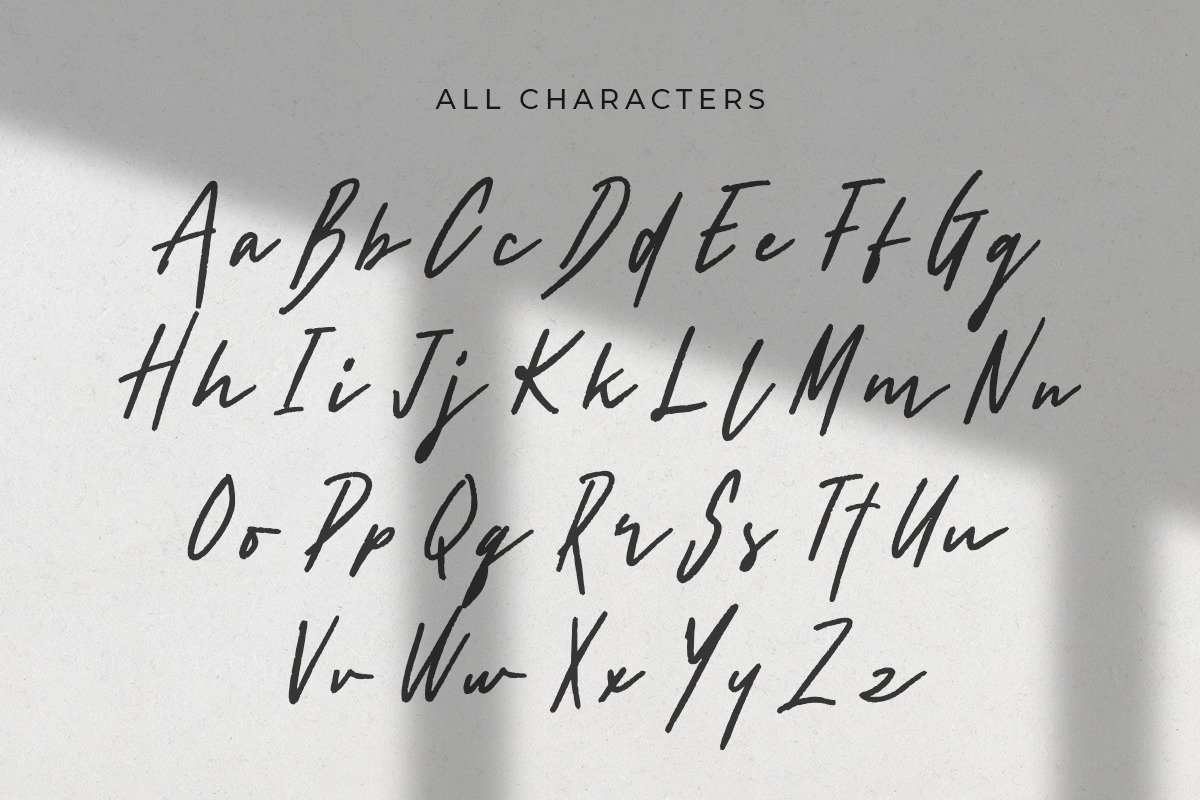 ALL CHARACTERS
Aa Bb Cc Dd Ee Ff Gg
Hh Ii Jj Kk Ll Mm Nn
Oo Pp Qq Rr Ss Tt Uu
Vv Ww Xx Yy Zz